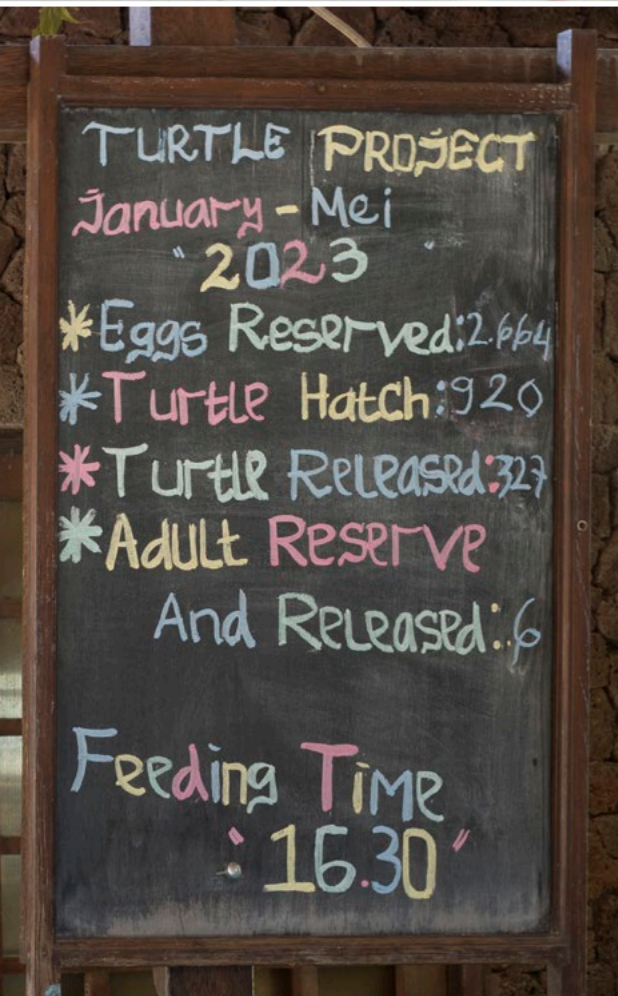 TURTLE PROJECT
January - Mei
" 2023 "
* Eggs Reserved: 2.664
* Turtle Hatch: 920
* Turtle Released: 327
* Adult Reserve
And Released: 6
Feeding Time
" 16.30 "